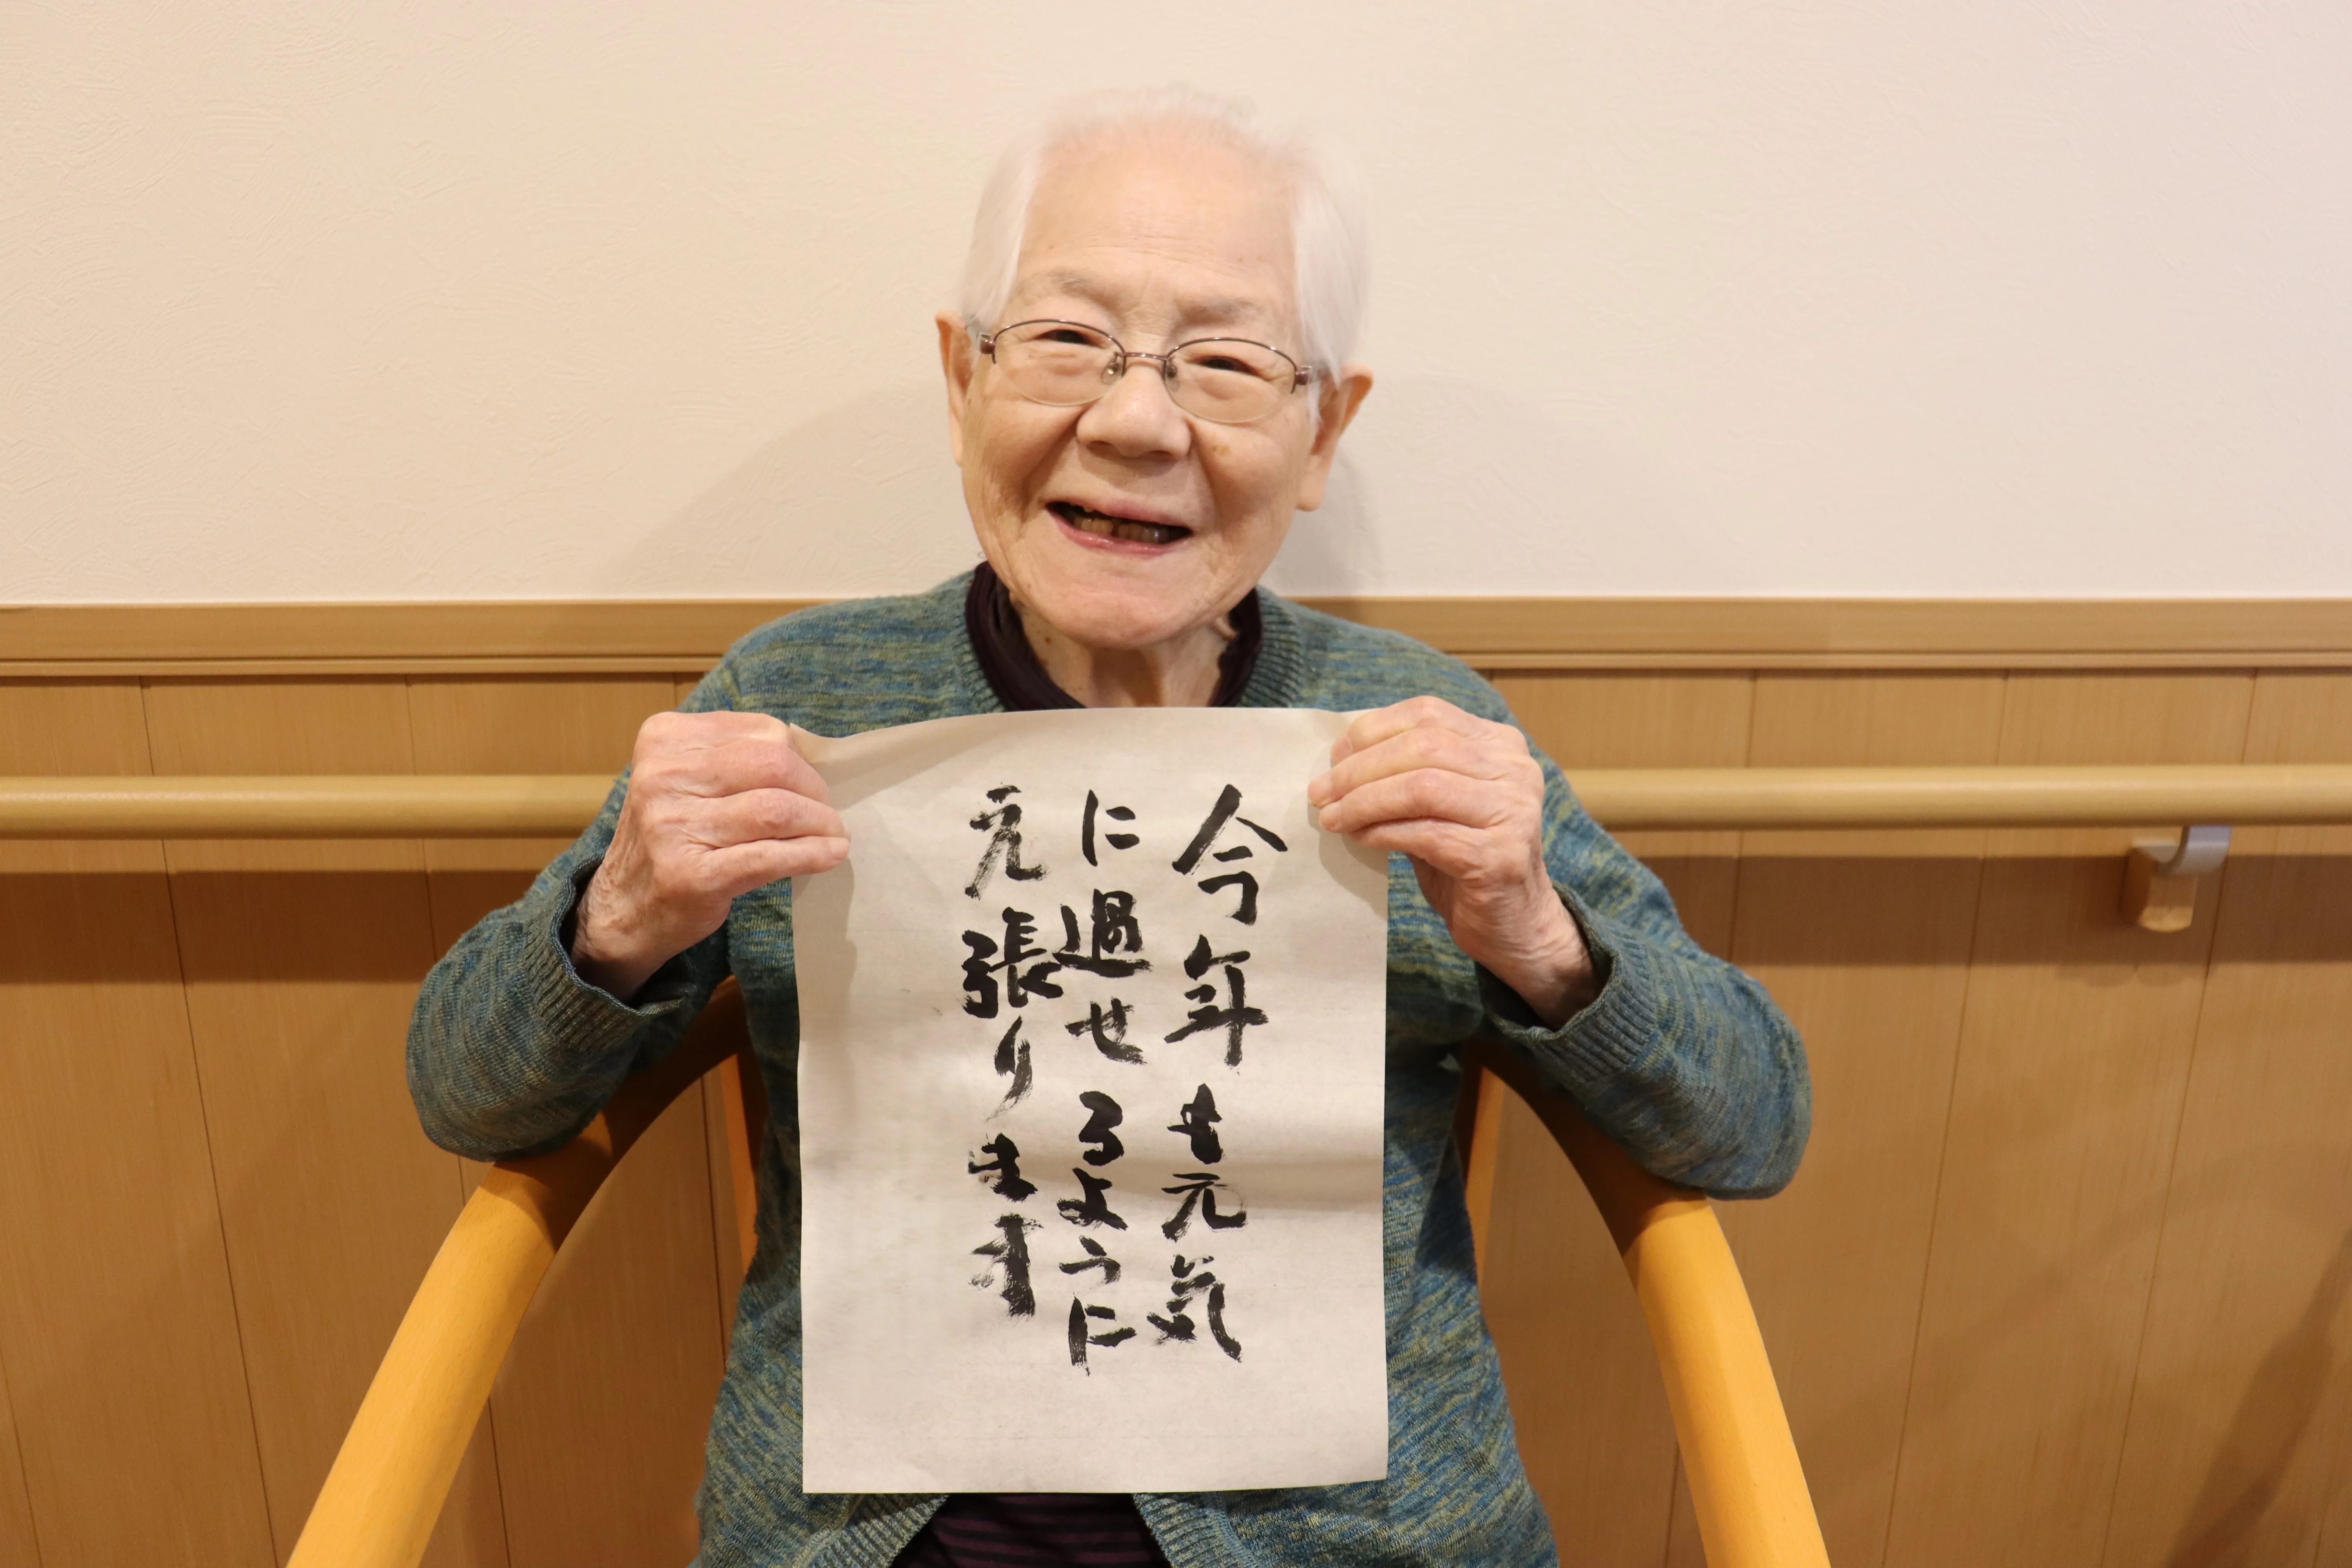 今年も元気
に過せるように
元張ります